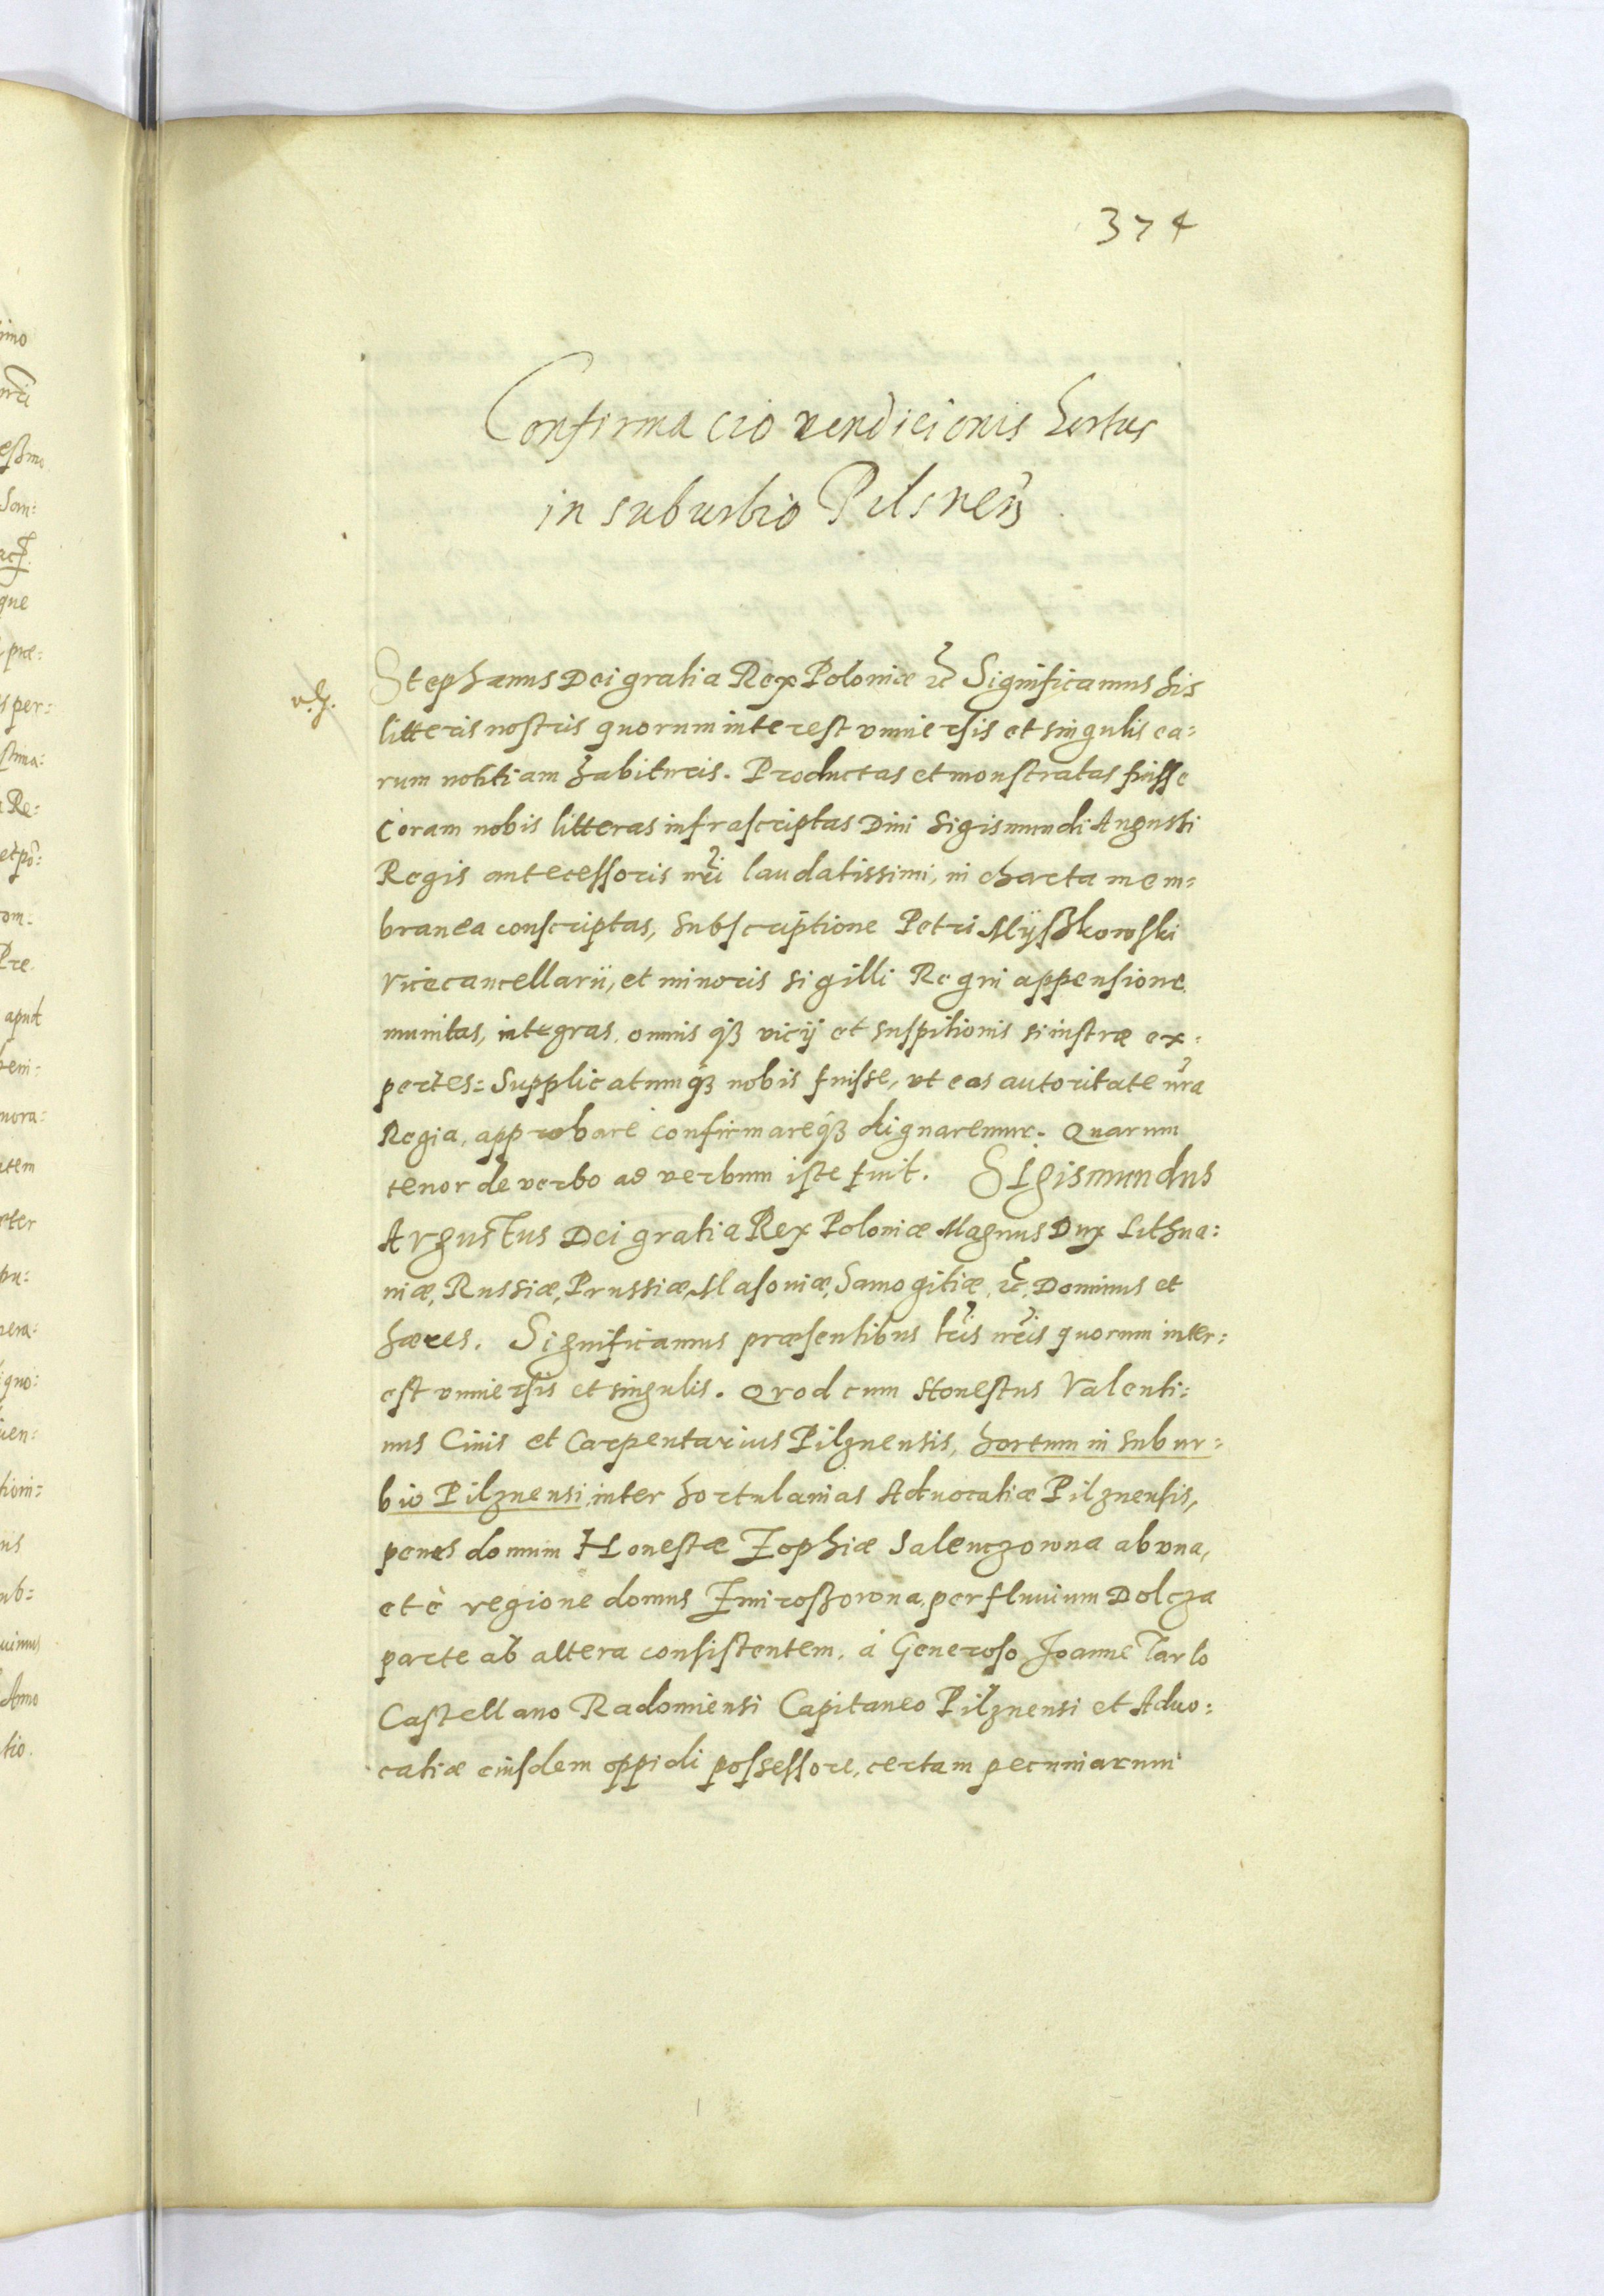 374
Confirmacio vendicionis hortus
in suburbio Pilsneñ
Stephanus Dei gratia Rex Poloniæ &c Significamus his
litteris nostris quorum interest vniuersis et singulis ea:
rum notitiam habituris. Productas et monstratas fuisse
Coram nobis litteras infrascriptas Diui Sigismundi Augusti
Regis antecessoris nr̃i laudatissimi, in charta mem:
branea conscriptas, subscriptione Petri Myßkowski
Vicecancellarii, et minoris sigilli Regni appensione
munitas, integras, omnisqʒ vicij et suspitionis sinistræ ex:
pertes: Supplicatumqʒ nobis fuisse, vt eas autoritate nr̃a
Regia, approbare confirmareqʒ dignaremur. Quarum
tenor de verbo ad verbum iste fuit. Sigismundus
Avgustus Dei gratia Rex Poloniæ Magnus Dux Lithua:
niæ, Russiæ, Prussiæ, Masouiæ, Samogitiæ, &c, Dominus et
hæres. Significamus præsentibus lr̃is nr̃is quorum inter:
est vniuersis et singulis. Qvod cum Honestus Valenti:
nus Ciuis et Carpentarius Pilznensis, hortum in subur:
bio Pilznensi inter hortulanias Aduocatiæ Pilznensis,
penes domum Honestæ Zophiæ Salenczowna ab vna,
et è regione domus Zmiroßowna, per fluuium Dolcza
parte ab altera consistentem, à Generoso Joanne Tarlo
Castellano Radomiensi Capitaneo Pilznensi et Aduo:
catiæ eiusdem oppidi possessore, certam pecuniarum